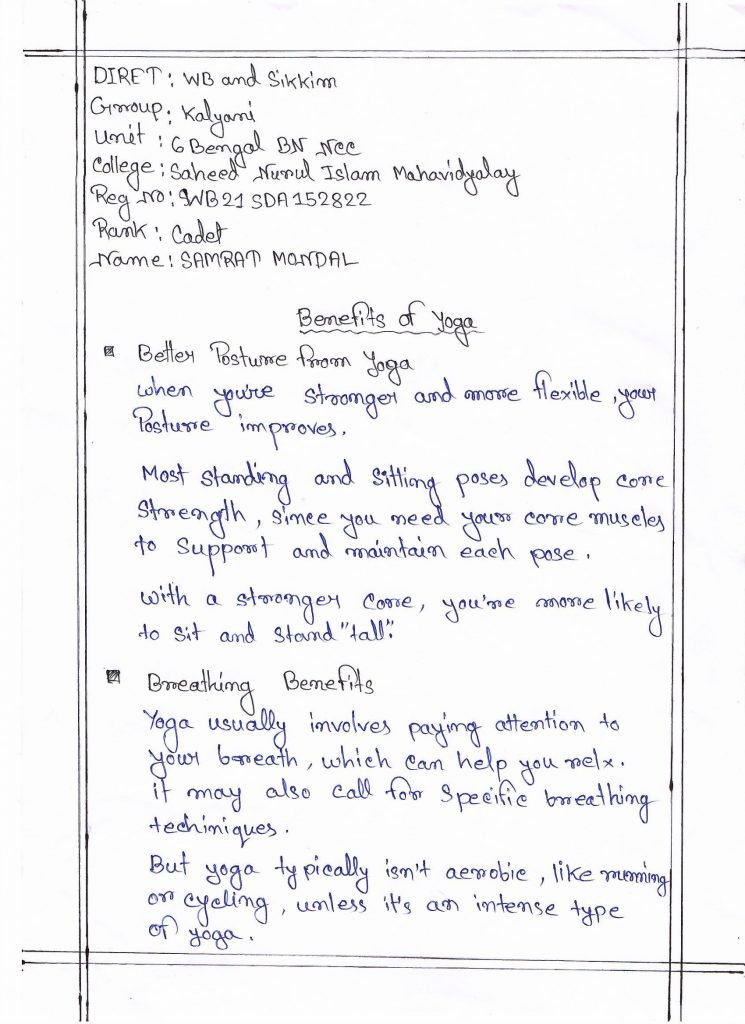 DIRET: WB and Sikkim
Group: Kalyani
Unit: 6 Bengal BN NCC
College: Saheed Nurul Islam Mahavidyalay
Reg No: WB21 SDA 152822
Rank: Cadet
Name: SAMRAT MONDAL
Benefits of Yoga
Better Posture from Yoga
when you're stronger and more flexible, your
Posture improves.
Most standing and sitting poses develop core
strength, since you need your core muscles
to support and maintain each pose.
with a stronger core, you're more likely
to sit and stand "tall".
Breathing Benefits
Yoga usually involves paying attention to
your breath, which can help you relx.
it may also call for specific breathing
techiniques.
But yoga typically isn't aerobic, like running
or cycling, unless it's an intense type
of yoga.